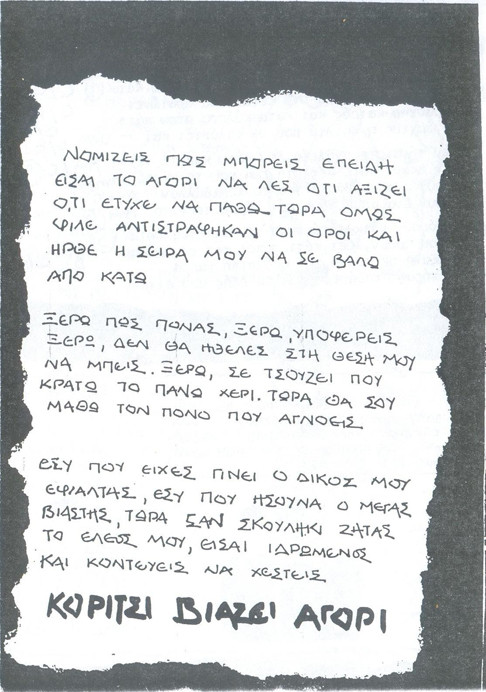 ΝΟΜΙΖΕΙΣ ΠΩΣ ΜΠΟΡΕΙΣ ΕΠΕΙΔΗ
ΕΙΣΑΙ ΤΟ ΑΓΟΡΙ ΝΑ ΛΕΣ ΟΤΙ ΑΞΙΖΕΙ
Ο,ΤΙ ΕΤΥΧΕ ΝΑ ΠΑΘΩ ΤΩΡΑ ΟΜΩΣ
ΦΙΛΕ ΑΝΤΙΣΤΡΑΦΗΚΑΝ ΟΙ ΟΡΟΙ ΚΑΙ
ΗΡΘΕ Η ΣΕΙΡΑ ΜΟΥ ΝΑ ΣΕ ΒΑΛΩ
ΑΠΟ ΚΑΤΩ
ΞΕΡΩ ΠΩΣ ΠΟΝΑΣ, ΞΕΡΩ, ΥΠΟΦΕΡΕΙΣ
ΞΕΡΩ, ΔΕΝ ΘΑ ΗΘΕΛΕΣ ΣΤΗ ΘΕΣΗ ΜΟΥ
ΝΑ ΜΠΕΙΣ. ΞΕΡΩ, ΣΕ ΤΣΟΥΖΕΙ ΠΟΥ
ΚΡΑΤΩ ΤΟ ΠΑΝΩ ΧΕΡΙ. ΤΩΡΑ ΘΑ ΣΟΥ
ΜΑΘΩ ΤΟΝ ΠΟΝΟ ΠΟΥ ΑΓΝΟΕΙΣ
ΕΣΥ ΠΟΥ ΕΙΧΕΣ ΓΙΝΕΙ Ο ΔΙΚΟΣ ΜΟΥ
ΕΦΙΑΛΤΑΣ, ΕΣΥ ΠΟΥ ΗΣΟΥΝΑ Ο ΜΕΓΑΣ
ΒΙΑΣΤΗΣ, ΤΩΡΑ ΣΑΝ ΣΚΟΥΛΗΚΙ ΖΗΤΑΣ
ΤΟ ΕΛΕΟΣ ΜΟΥ, ΕΙΣΑΙ ΙΔΡΩΜΕΝΟΣ
ΚΑΙ ΚΟΝΤΕΥΕΙΣ ΝΑ ΧΕΣΤΕΙΣ
ΚΟΡΙΤΣΙ ΒΙΑΖΕΙ ΑΓΟΡΙ